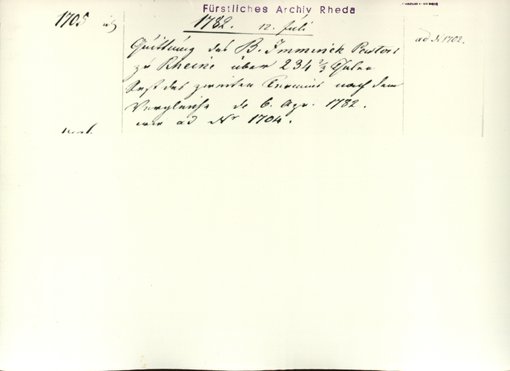 Fürstliches Archiv Rheda
1705
1782. 12. Juli
ad N. 1702.
Quittung des B. Immink Pastors
zu Rheine über 234 ½ Thaler
Rest des zweiten Termins nach dem
Vergleiche de 6. Apr. 1782.
wie ad Nr 1704.